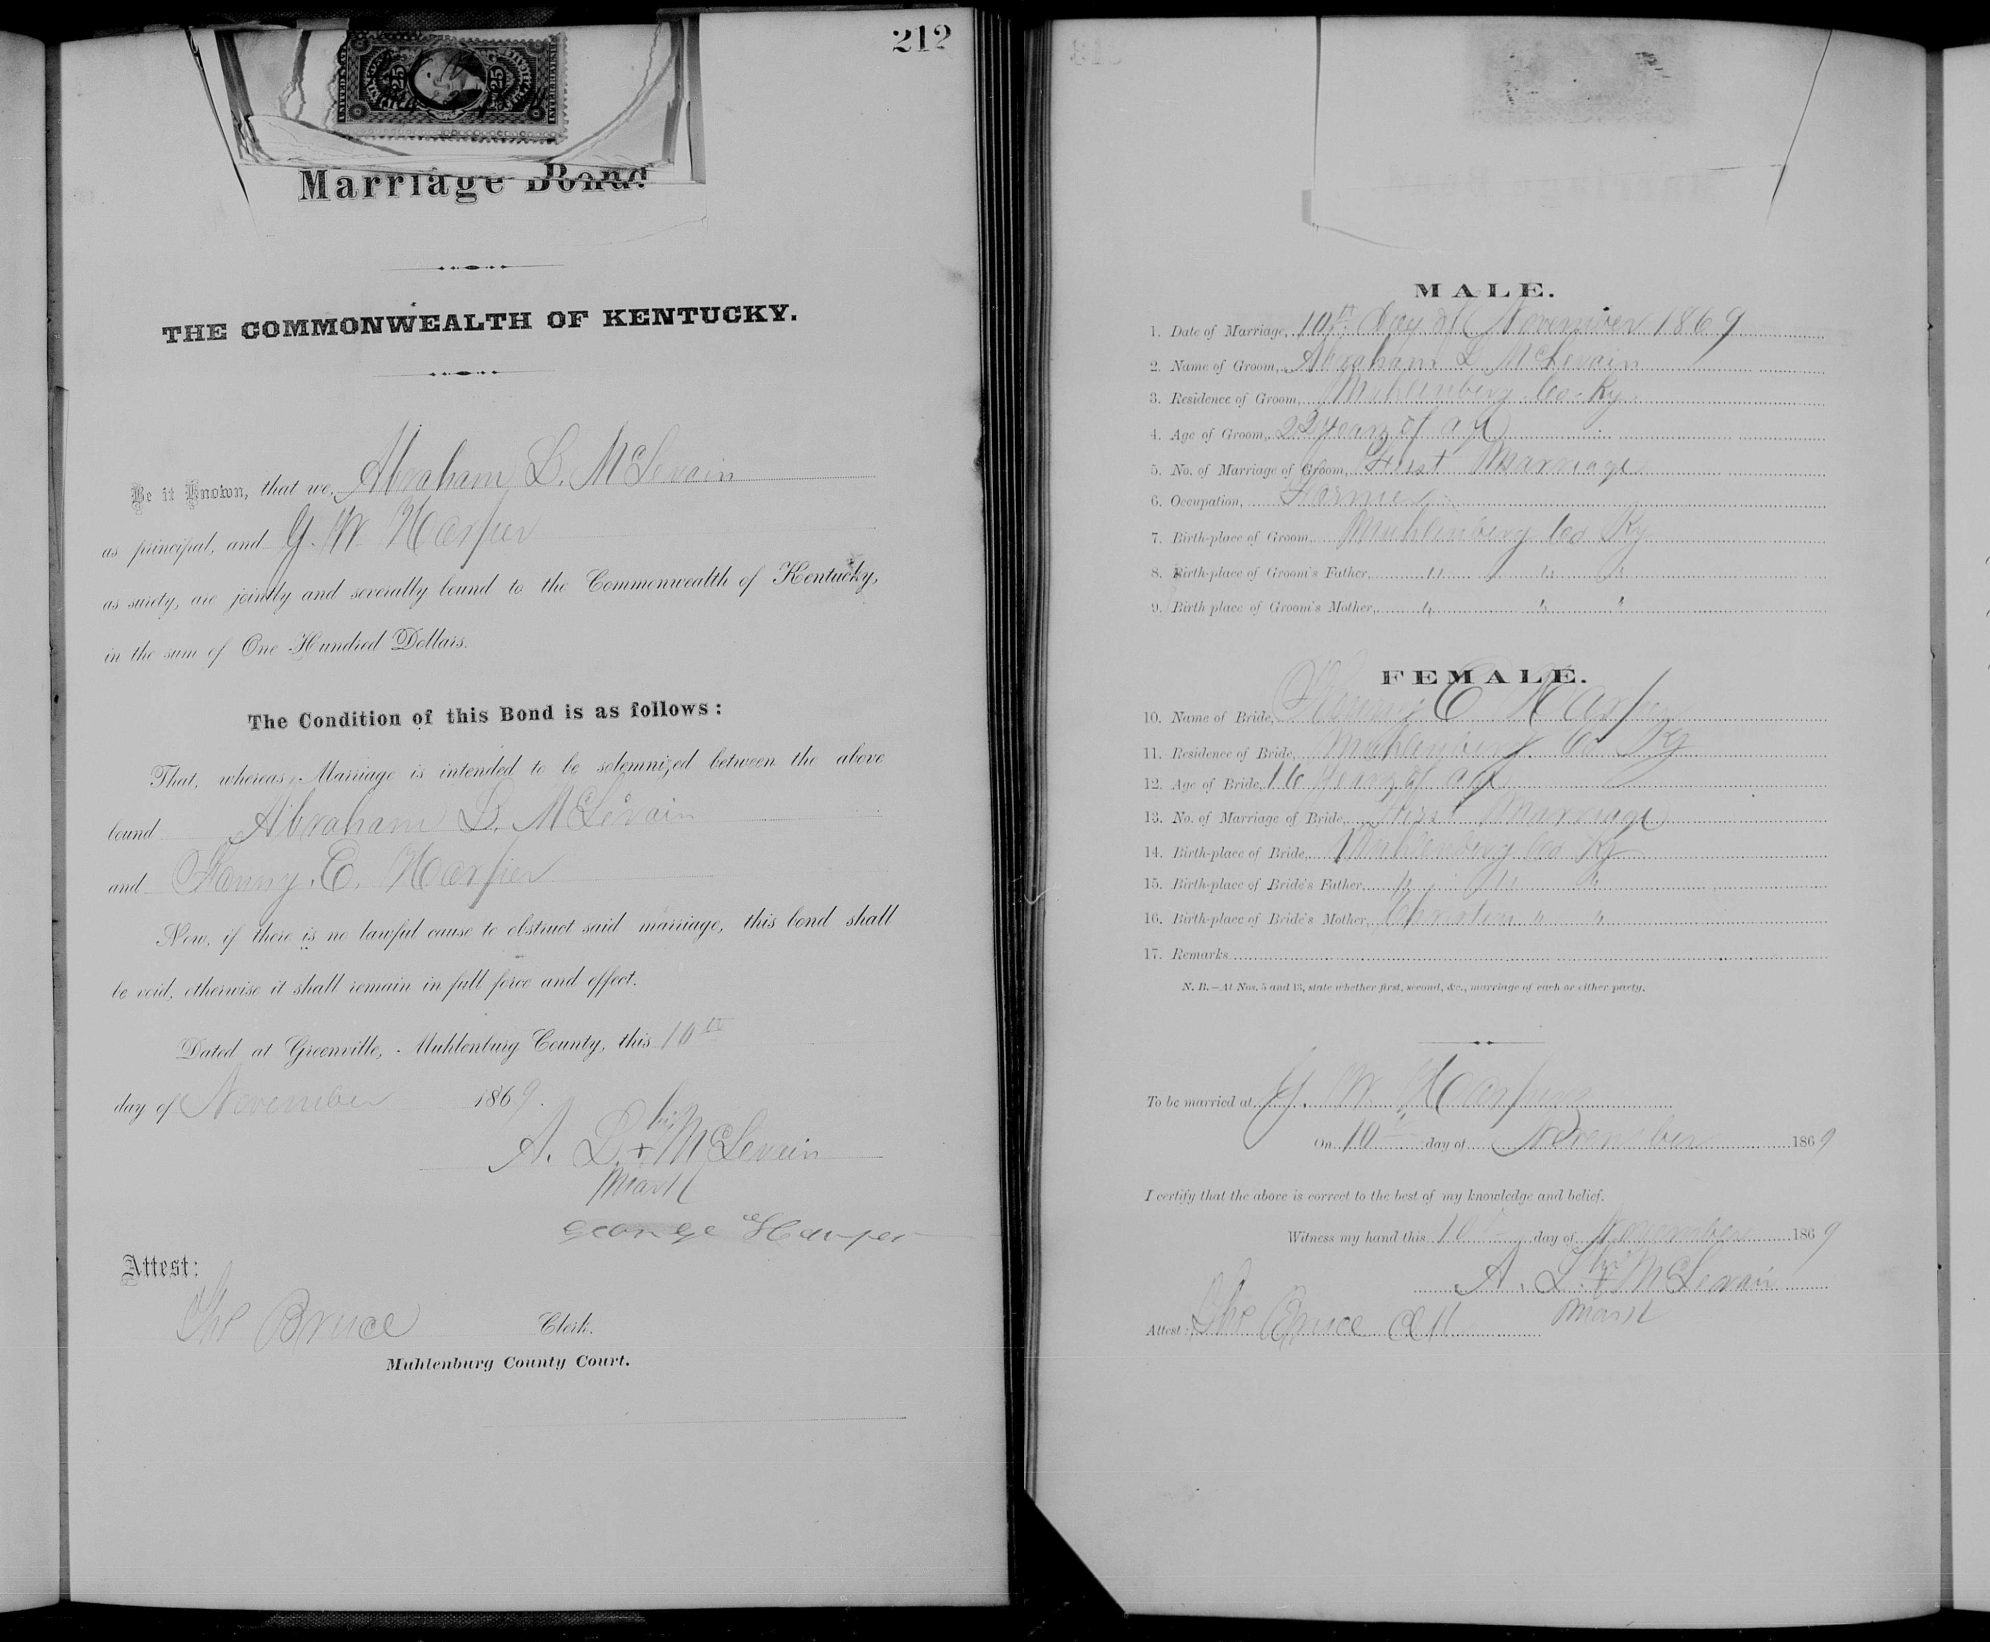 212
Marriage Bond.
THE COMMONWEALTH OF KENTUCKY.
Be it Known, that we, Abraham L. McLevain
as principal, and G. W. Harper
as surety, are jointly and severally bound to the Commonwealth of Kentucky,
in the sum of One Hundred Dollars.
The Condition of this Bond is as follows:
That, whereas, Marriage is intended to be solemnized between the above
bound Abraham L. McLevain
and Fanny E. Harper
Now, if there is no lawful cause to obstruct said marriage, this bond shall
be void, otherwise it shall remain in full force and effect.
Dated at Greenville, Muhlenburg County, this 10th
day of November 1869.
his
A. L. + McLevain
mark
George W Harper
Attest:
Tho Bruce Clerk.
Muhlenburg County Court.
MALE.
1. Date of Marriage, 10th Day of November 1869
2. Name of Groom, Abraham L McLevain
3. Residence of Groom, Muhlenberg Co. Ky.
4. Age of Groom, 22 years of age
5. No. of Marriage of Groom, First Marriage
6. Occupation, Farmer
7. Birth-place of Groom, Muhlenberg Co Ky
8. Birth-place of Groom's Father, " " "
9. Birth place of Groom's Mother, " " "
FEMALE.
10. Name of Bride, E Harper
11. Residence of Bride, Muhlenberg Co Ky
12. Age of Bride, 16 years of age
13. No. of Marriage of Bride, First Marriage
14. Birth-place of Bride, Muhlenberg Co Ky
15. Birth-place of Bride's Father, " " "
16. Birth-place of Bride's Mother, Christian " "
17. Remarks
N. B.—At Nos. 5 and 13, state whether first, second, &c., marriage of each or either party.
To be married at G. W. Harpers
On 10th day of November 1869
I certify that the above is correct to the best of my knowledge and belief.
Witness my hand this 10th day of November 1869
his
A. L. + McLevain
mark
Attest: Tho Bruce Clk